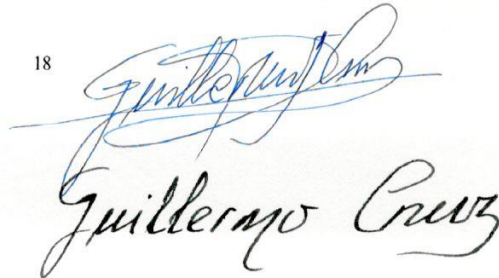 18
Guillermo Cruz